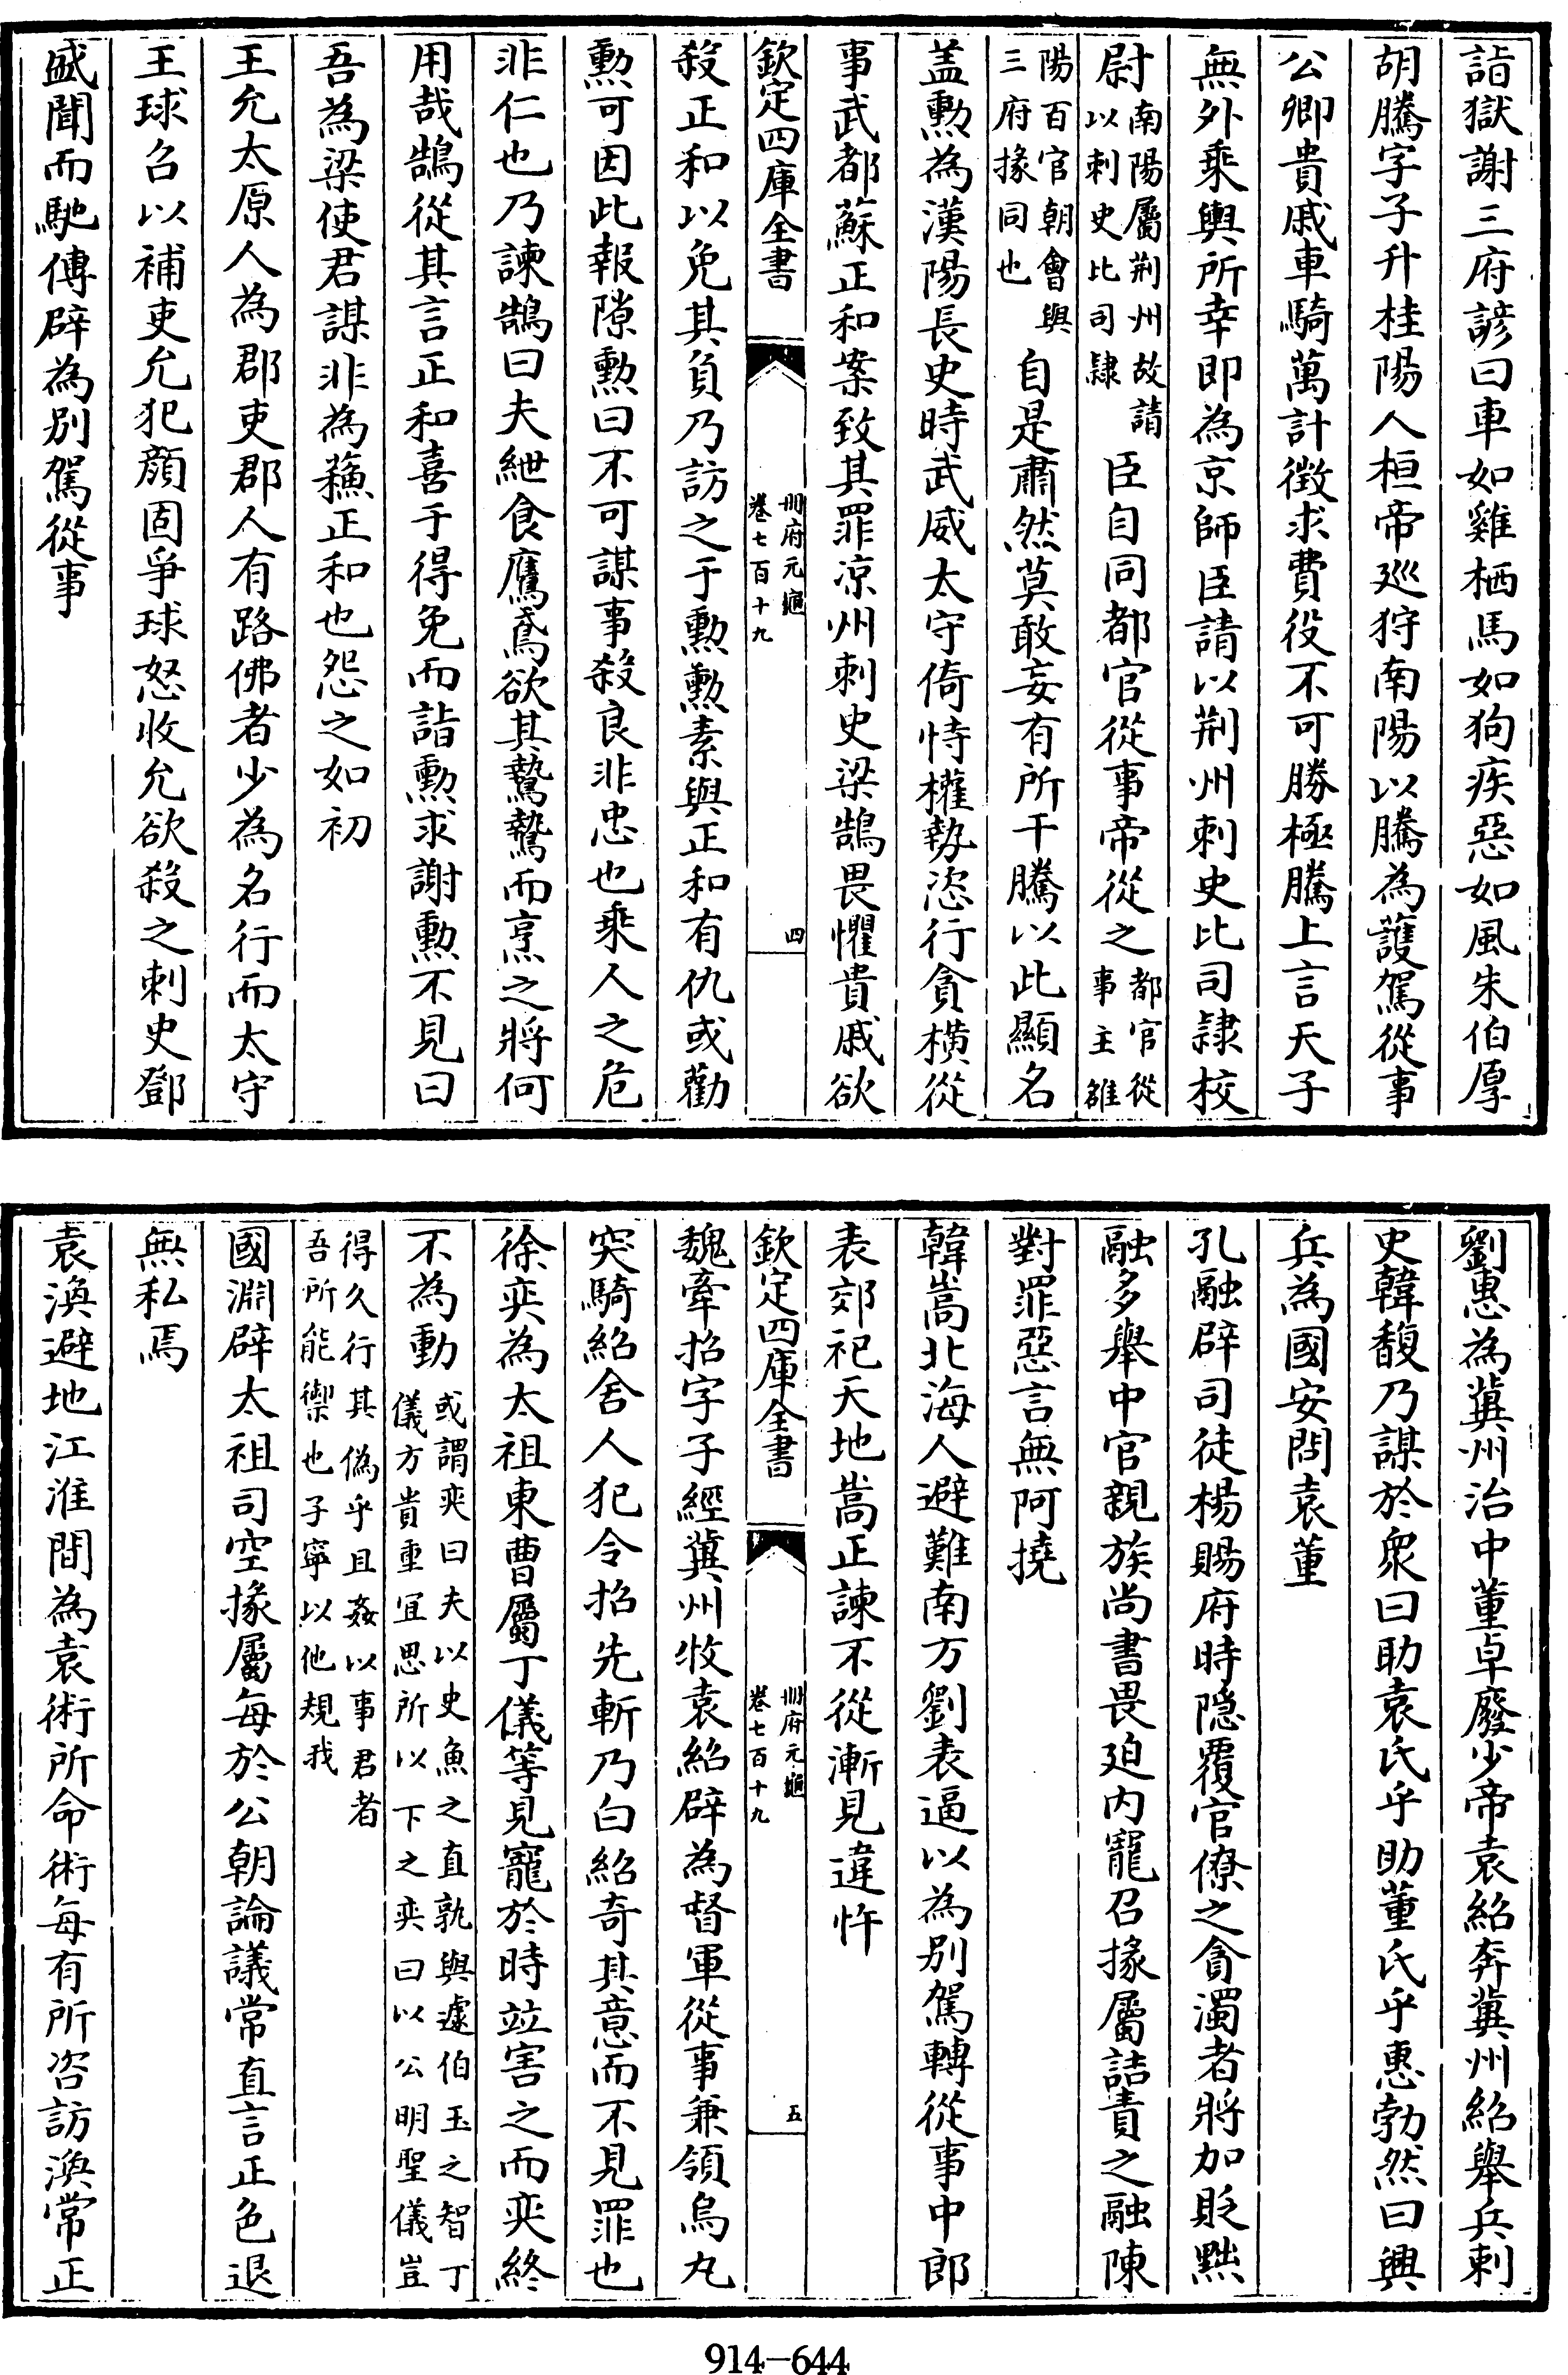 詣獄謝三府諺曰車如雞栖馬如狗疾惡如風朱伯厚
胡騰字子升桂陽人桓帝廵狩南陽以騰為護駕從事
公卿貴戚車騎萬計徴求費役不可勝極騰上言天子
無外乘輿所幸即為京師臣請以荆州刺史比司隷校
尉南陽屬荆州故請以刺史比司隷臣自同都官從事帝從之都官從事主雒
陽百官朝會與三府掾同也自是肅然莫敢妄有所干騰以此顯名
盖勲為漢陽長史時武威太守倚恃權勢恣行貪横從
事武都蘇正和案致其罪凉州刺史梁鵠畏懼貴戚欲
欽定四庫全書
冊府元龜
卷七百十九
四
殺正和以免其負乃訪之于勲勲素與正和有仇或勸
勲可因此報隙勲曰不可謀事殺良非忠也乘人之危
非仁也乃諫鵠曰夫紲食鷹鳶欲其鷙鷙而烹之將何
用哉鵠從其言正和喜于得免而詣勲求謝勲不見曰
吾為梁使君謀非為蘓正和也怨之如初
王允太原人為郡吏郡人有路佛者少為名行而太守
王球召以補吏允犯顔固爭球怒收允欲殺之刺史鄧
盛聞而馳傳辟為别駕從事
劉惠為冀州治中董卓廢少帝袁紹奔冀州紹舉兵刺
史韓馥乃謀於衆曰助袁氏乎助董氏乎惠勃然曰興
兵為國安問袁董
孔融辟司徒楊賜府時隠覈官僚之貪濁者將加貶黜
融多舉中官親族尚書畏廹内寵召掾屬詰責之融陳
對罪惡言無阿撓
韓嵩北海人避難南方劉表逼以為别駕轉從事中郎
表郊祀天地嵩正諫不從漸見違忤
欽定四庫全書
冊府元龜
卷七百十九
五
魏牽招字子經冀州牧袁紹辟為督軍從事兼領烏丸
突騎紹舍人犯令招先斬乃白紹奇其意而不見罪也
徐奕為太祖東曹屬丁儀等見寵於時竝害之而奕終
不為動或謂奕曰夫以史魚之直孰與遽伯玉之智丁儀方貴重宜思所以下之奕曰以公明聖儀豈
得久行其偽乎且姦以事君者吾所能禦也子寧以他規我
國淵辟太祖司空掾屬每於公朝論議常直言正色退
無私焉
袁渙避地江淮間為袁術所命術每有所咨訪渙常正
914-644